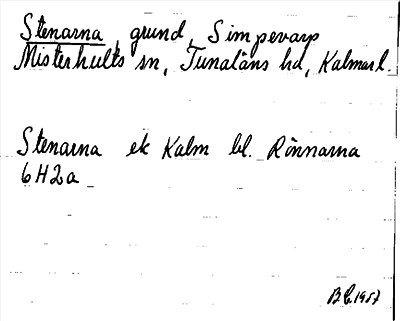 Stenarna, grund, Simpevarp
Misterhults sn, Tunaläns hd, Kalmar l.
Stenarna ek Kalm bl. Rönnarna
6H2a